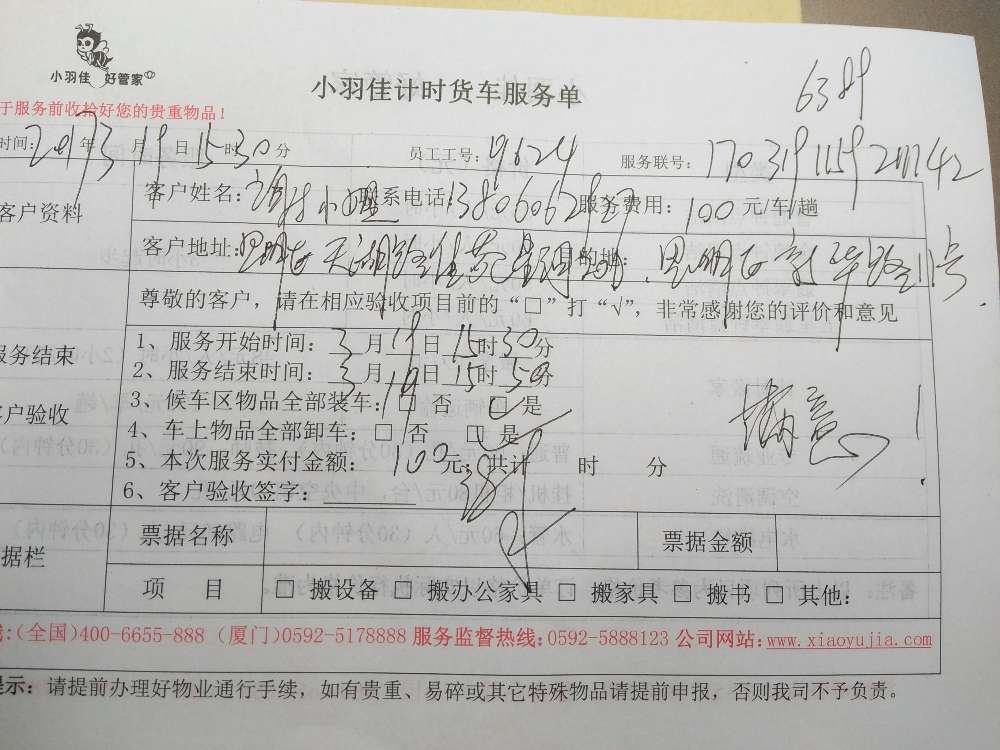 小羽佳 好管家
小羽佳计时货车服务单
6389
于服务前收拾好您的贵重物品!
时间: 2017年3月19日15时30分 员工工号: 9624 服务联号:
客户资料
客户姓名: 小 系电话: 13806062 服务费用: 100元/车/趟
客户地址: 思明区天湖路 的地: 思明区 路 11号
尊敬的客户,请在相应验收项目前的“□”打“√”,非常感谢您的评价和意见
服务结束
客户验收
1、服务开始时间: 3月19日15时30分
2、服务结束时间: 3月19日15时50分
3、候车区物品全部装车: □ 否 □ 是
4、车上物品全部卸车: □ 否 □ 是
5、本次服务实付金额: 100元; 共计 时 分
6、客户验收签字:
满意!
据栏
票据名称 票据金额
项 目 □ 搬设备 □ 搬办公家具 □ 搬家具 □ 搬书 □ 其他:
线:(全国)400-6655-888 (厦门)0592-5178888 服务监督热线:0592-5888123 公司网站:www.xiaoyujia.com
提示: 请提前办理好物业通行手续,如有贵重、易碎或其它特殊物品请提前申报,否则我司不予负责。